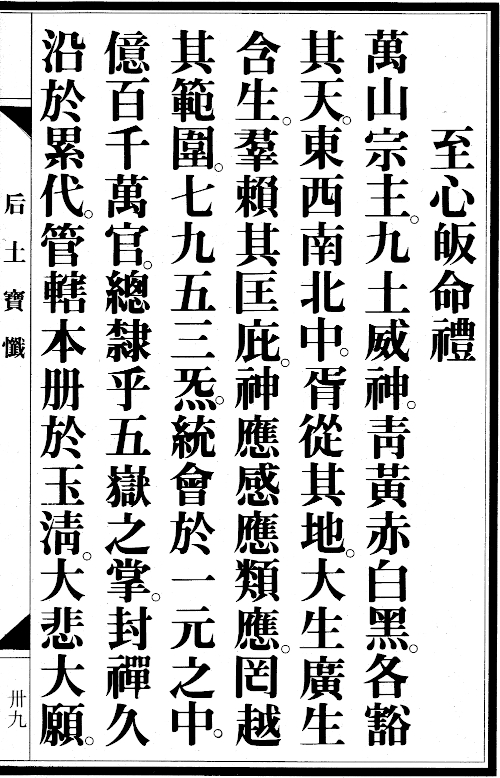 至心皈命禮
萬山宗主。九土威神。青黃赤白黑。各豁
其天。東西南北中。胥從其地。大生廣生
含生。羣賴其匡庇。神應感應類應。罔越
其範圍。七九五三炁。統會於一元之中。
億百千萬官。總隸乎五嶽之掌。封禪久
沿於累代。管轄本册於玉淸。大悲大願。
后土寶懺
卅九